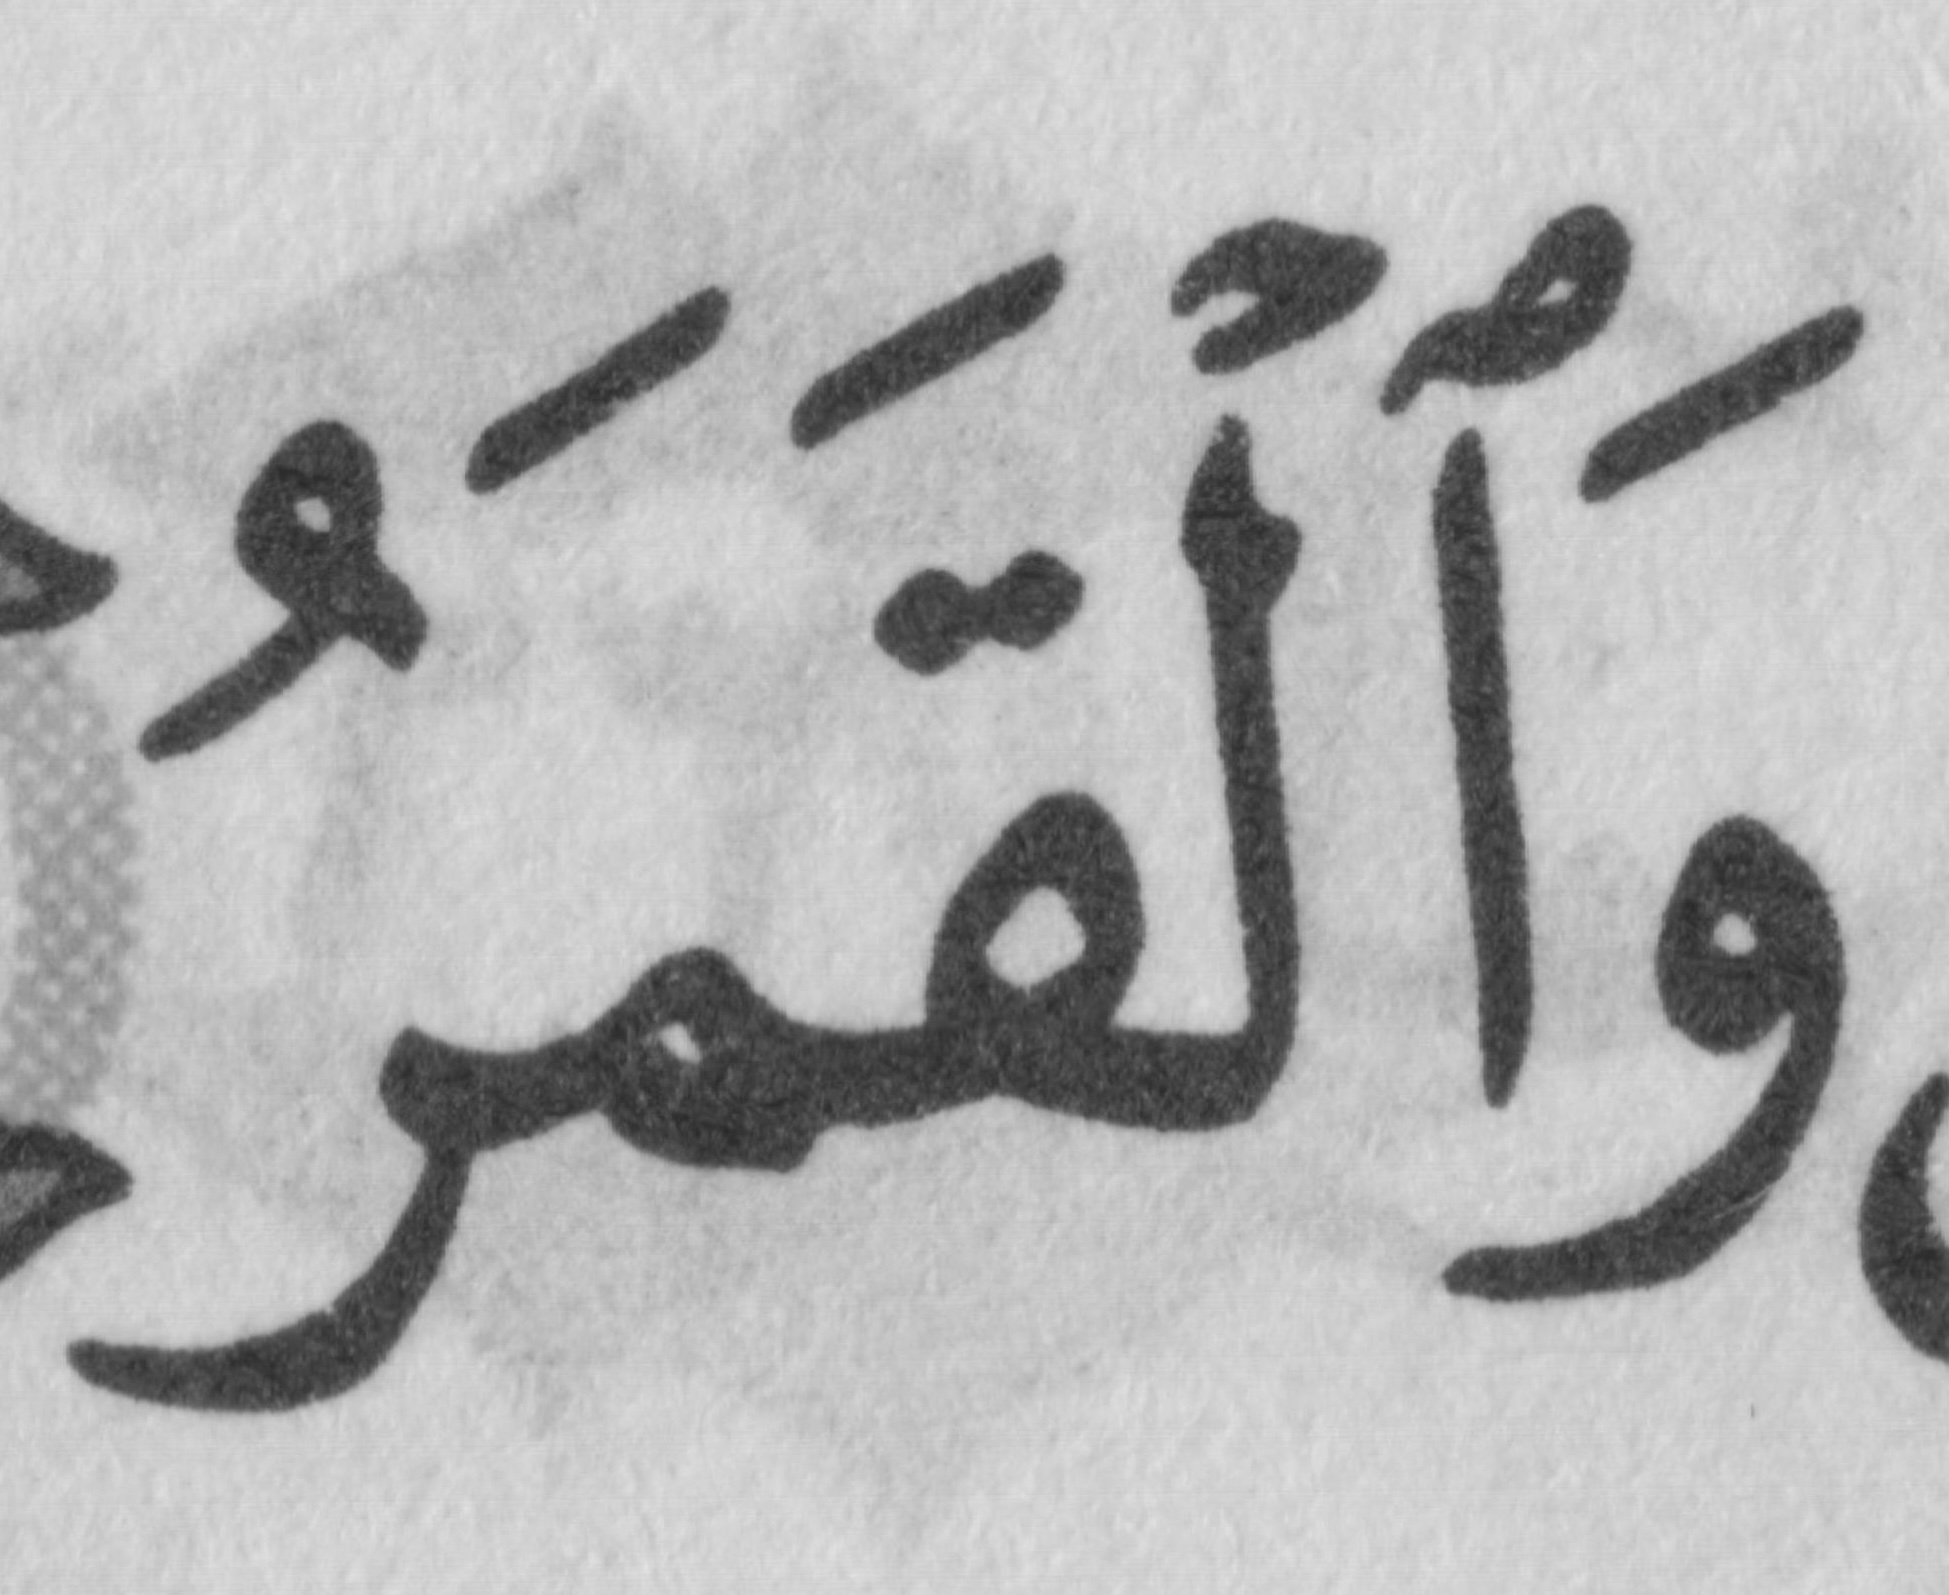 وَٱلْقَمَرُ